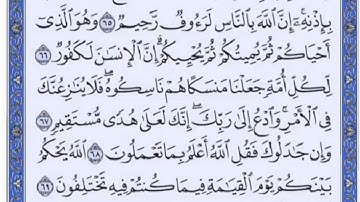 بِإِذْنِهِۦٓ ۗ إِنَّ ٱللَّهَ بِٱلنَّاسِ لَرَءُوفٌ رَّحِيمٌ ٦٥ وَهُوَ ٱلَّذِىٓ
أَحْيَاكُمْ ثُمَّ يُمِيتُكُمْ ثُمَّ يُحْيِيكُمْ ۗ إِنَّ ٱلْإِنسَٰنَ لَكَفُورٌ ٦٦
لِّكُلِّ أُمَّةٍ جَعَلْنَا مَنسَكًا هُمْ نَاسِكُوهُ ۖ فَلَا يُنَٰزِعُنَّكَ
فِى ٱلْأَمْرِ ۚ وَٱدْعُ إِلَىٰ رَبِّكَ ۖ إِنَّكَ لَعَلَىٰ هُدًى مُّسْتَقِيمٍ ٦٧
وَإِن جَٰدَلُوكَ فَقُلِ ٱللَّهُ أَعْلَمُ بِمَا تَعْمَلُونَ ٦٨ ٱللَّهُ يَحْكُمُ
بَيْنَكُمْ يَوْمَ ٱلْقِيَٰمَةِ فِيمَا كُنتُمْ فِيهِ تَخْتَلِفُونَ ٦٩